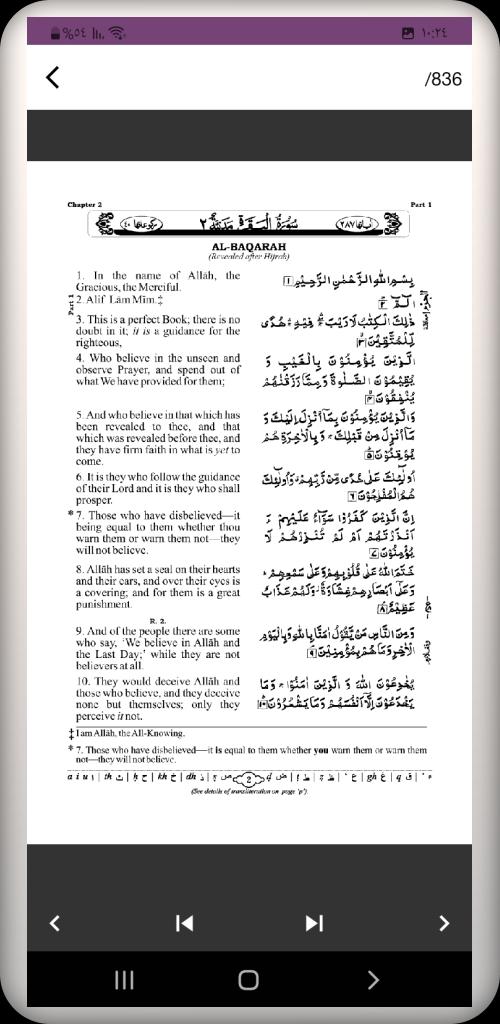 %٥٤
١٠:٢٤
/836
Chapter 2
Part 1
ركوعاتها ٤٠
سُورَةُ الْبَقَرَةِ مَدَنِيَّةٌ ٢
اٰياتها ٢٨٧
AL-BAQARAH
(Revealed after Hijrah)
1. In the name of Allāh, the
Gracious, the Merciful.
Part 1
‡ 2. Alif Lām Mīm.‡
3. This is a perfect Book; there is no
doubt in it; it is a guidance for the
righteous,
4. Who believe in the unseen and
observe Prayer, and spend out of
what We have provided for them;
5. And who believe in that which has
been revealed to thee, and that
which was revealed before thee, and
they have firm faith in what is yet to
come.
6. It is they who follow the guidance
of their Lord and it is they who shall
prosper.
* 7. Those who have disbelieved—it
being equal to them whether thou
warn them or warn them not—they
will not believe.
8. Allāh has set a seal on their hearts
and their ears, and over their eyes is
a covering; and for them is a great
punishment.
R. 2.
9. And of the people there are some
who say, ‘We believe in Allāh and
the Last Day;’ while they are not
believers at all.
10. They would deceive Allāh and
those who believe, and they deceive
none but themselves; only they
perceive it not.
بِسْمِ اللّٰهِ الرَّحْمٰنِ الرَّحِيْمِ ١
الٓمّٓ ٢
ذٰلِكَ الْكِتٰبُ لَا رَيْبَ ۛ فِيْهِ ۛ هُدًى
لِّلْمُتَّقِيْنَ ٣
الَّذِيْنَ يُؤْمِنُوْنَ بِالْغَيْبِ وَ
يُقِيْمُوْنَ الصَّلٰوةَ وَمِمَّا رَزَقْنٰهُمْ
يُنْفِقُوْنَ ٤
وَالَّذِيْنَ يُؤْمِنُوْنَ بِمَآ اُنْزِلَ اِلَيْكَ وَ
مَآ اُنْزِلَ مِنْ قَبْلِكَ ۚ وَبِالْاٰخِرَةِ هُمْ
يُوْقِنُوْنَ ٥
اُولٰٓئِكَ عَلٰى هُدًى مِّنْ رَّبِّهِمْ ۗ وَاُولٰٓئِكَ
هُمُ الْمُفْلِحُوْنَ ٦
اِنَّ الَّذِيْنَ كَفَرُوْا سَوَآءٌ عَلَيْهِمْ ءَ
اَنْذَرْتَهُمْ اَمْ لَمْ تُنْذِرْهُمْ لَا
يُؤْمِنُوْنَ ٧
خَتَمَ اللّٰهُ عَلٰى قُلُوْبِهِمْ وَعَلٰى سَمْعِهِمْ ؕ
وَعَلٰٓى اَبْصَارِهِمْ غِشَاوَةٌ ؗ وَّلَهُمْ عَذَابٌ
عَظِيْمٌ ٨
وَمِنَ النَّاسِ مَنْ يَّقُوْلُ اٰمَنَّا بِاللّٰهِ وَبِالْيَوْمِ
الْاٰخِرِ وَمَا هُمْ بِمُؤْمِنِيْنَ ٩
يُخٰدِعُوْنَ اللّٰهَ وَ الَّذِيْنَ اٰمَنُوْا ۚ وَمَا
يَخْدَعُوْنَ اِلَّآ اَنْفُسَهُمْ وَمَا يَشْعُرُوْنَ ١٠
‡ I am Allāh, the All-Knowing.
* 7. Those who have disbelieved—it is equal to them whether you warn them or warn them
not—they will not believe.
a i u ا | th ث | ḥ ح | kh خ | dh ذ | ṣ ص 2 ḍ ض | ṭ ط | ẓ ظ | ‘ ع | gh غ | q ق | ’ ء
(See details of transliteration on page 'p').